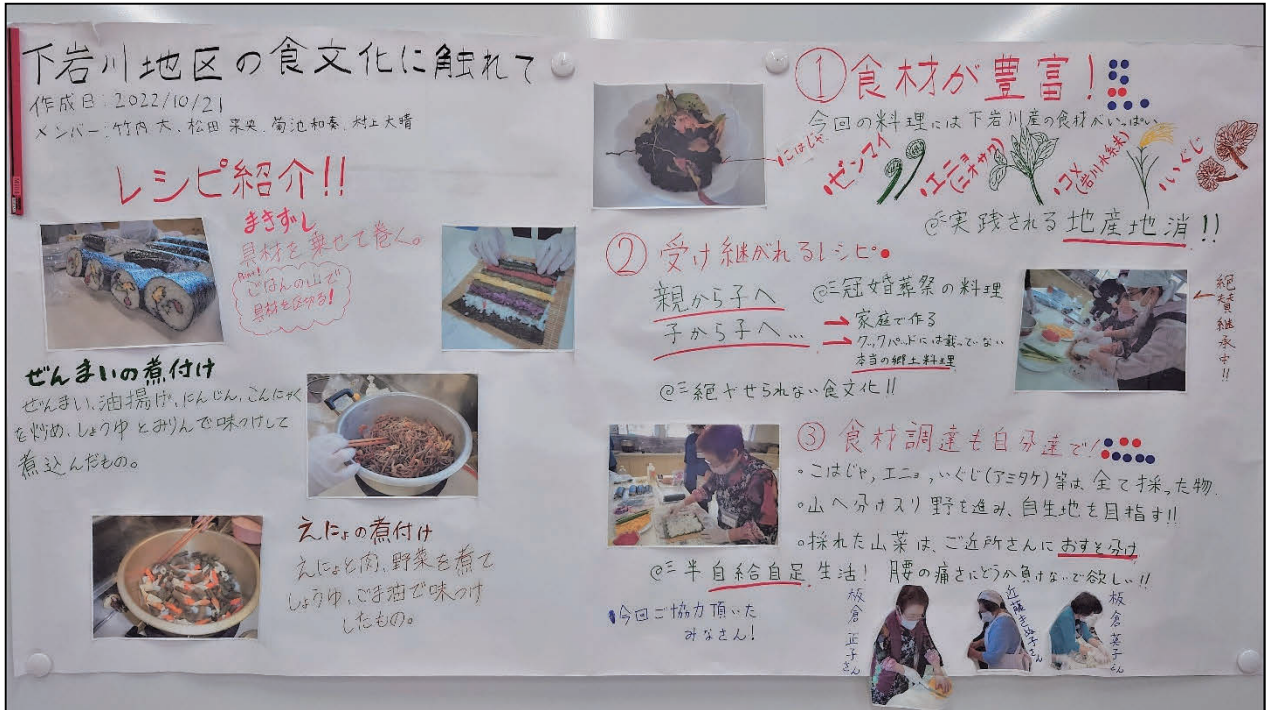 下岩川地区の食文化に触れて
作成日:2022/10/21
メンバー:竹内 大、松田 栞央、菊池和奏、村上大晴
レシピ紹介!!
まきずし
具材を乗せて巻く。
Point!
ごはんの山で
具材を留める!
ぜんまいの煮付け
ぜんまい、油揚げ、にんじん、こんにゃく
を炒め、しょうゆとみりんで味つけして
煮込んだもの。
えにょの煮付け
えにょと肉、野菜を煮て
しょうゆ、ごま油で味つけ
したもの。
①食材が豊富!
今回の料理には下岩川産の食材がいっぱい
こはじゃ
ゼンマイ
エニョ
コメ(岩川水系米)
いぐじ
@≡実践される地産地消!!
②受け継がれるレシピ
親から子へ
子から子へ…
@≡冠婚葬祭の料理
→家庭で作る
→クックパッドには載っていない
本当の郷土料理
@≡絶やせられない食文化!!
絶賛継承中!!
③食材調達も自分達で!
・こはじゃ、エニョ、いぐじ(アミタケ)等は、全て採った物。
・山へ分け入り野を進み、自生地を目指す!!
・採れた山菜は、ご近所さんにおすそ分け
@≡半自給自足生活!
腰の痛さにどうか負けないで欲しい!!
今回ご協力頂いた
みなさん!
板倉 正子さん
近藤きぬ子さん
板倉